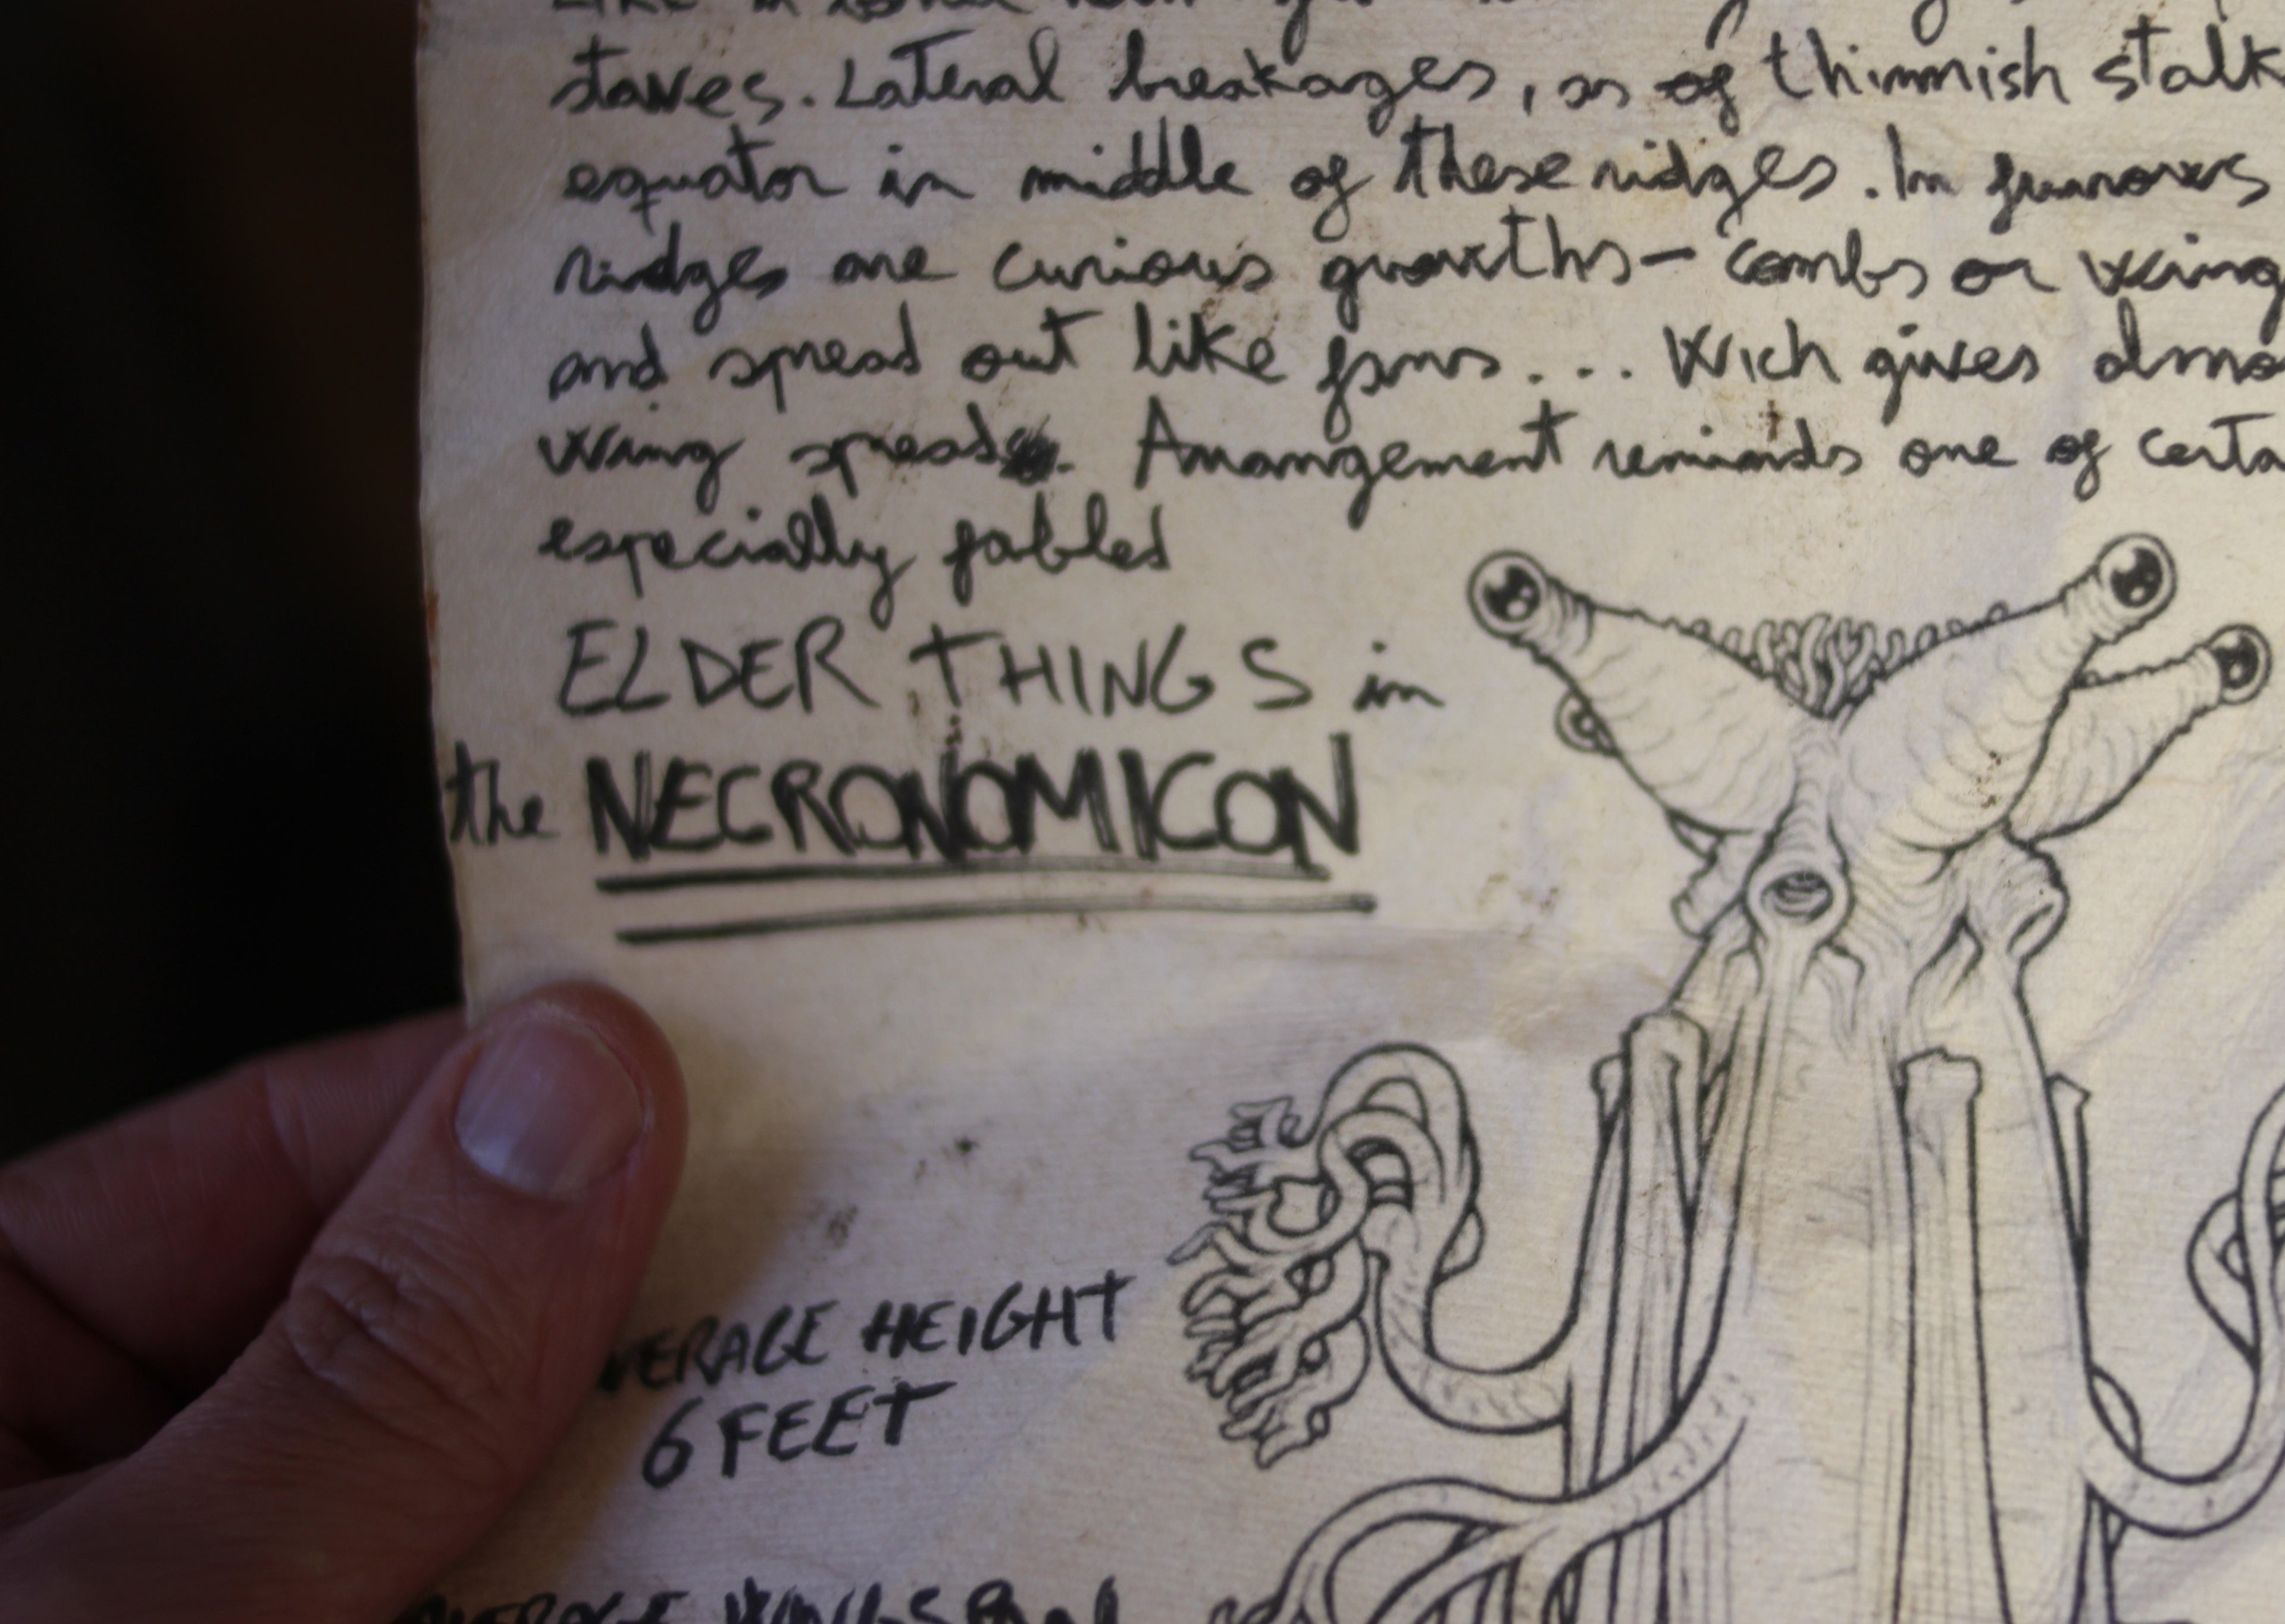 staves. Lateral breakages, as of thinnish stalk
equator in middle of these ridges. In furrows
ridges are curious growths— combs or wing
and spread out like fans... Wich gives almo
wing spread. Arrangement reminds one of certa
especially fabled
ELDER THINGS in
the NECRONOMICON
VERAGE HEIGHT
6 FEET
AVERAGE